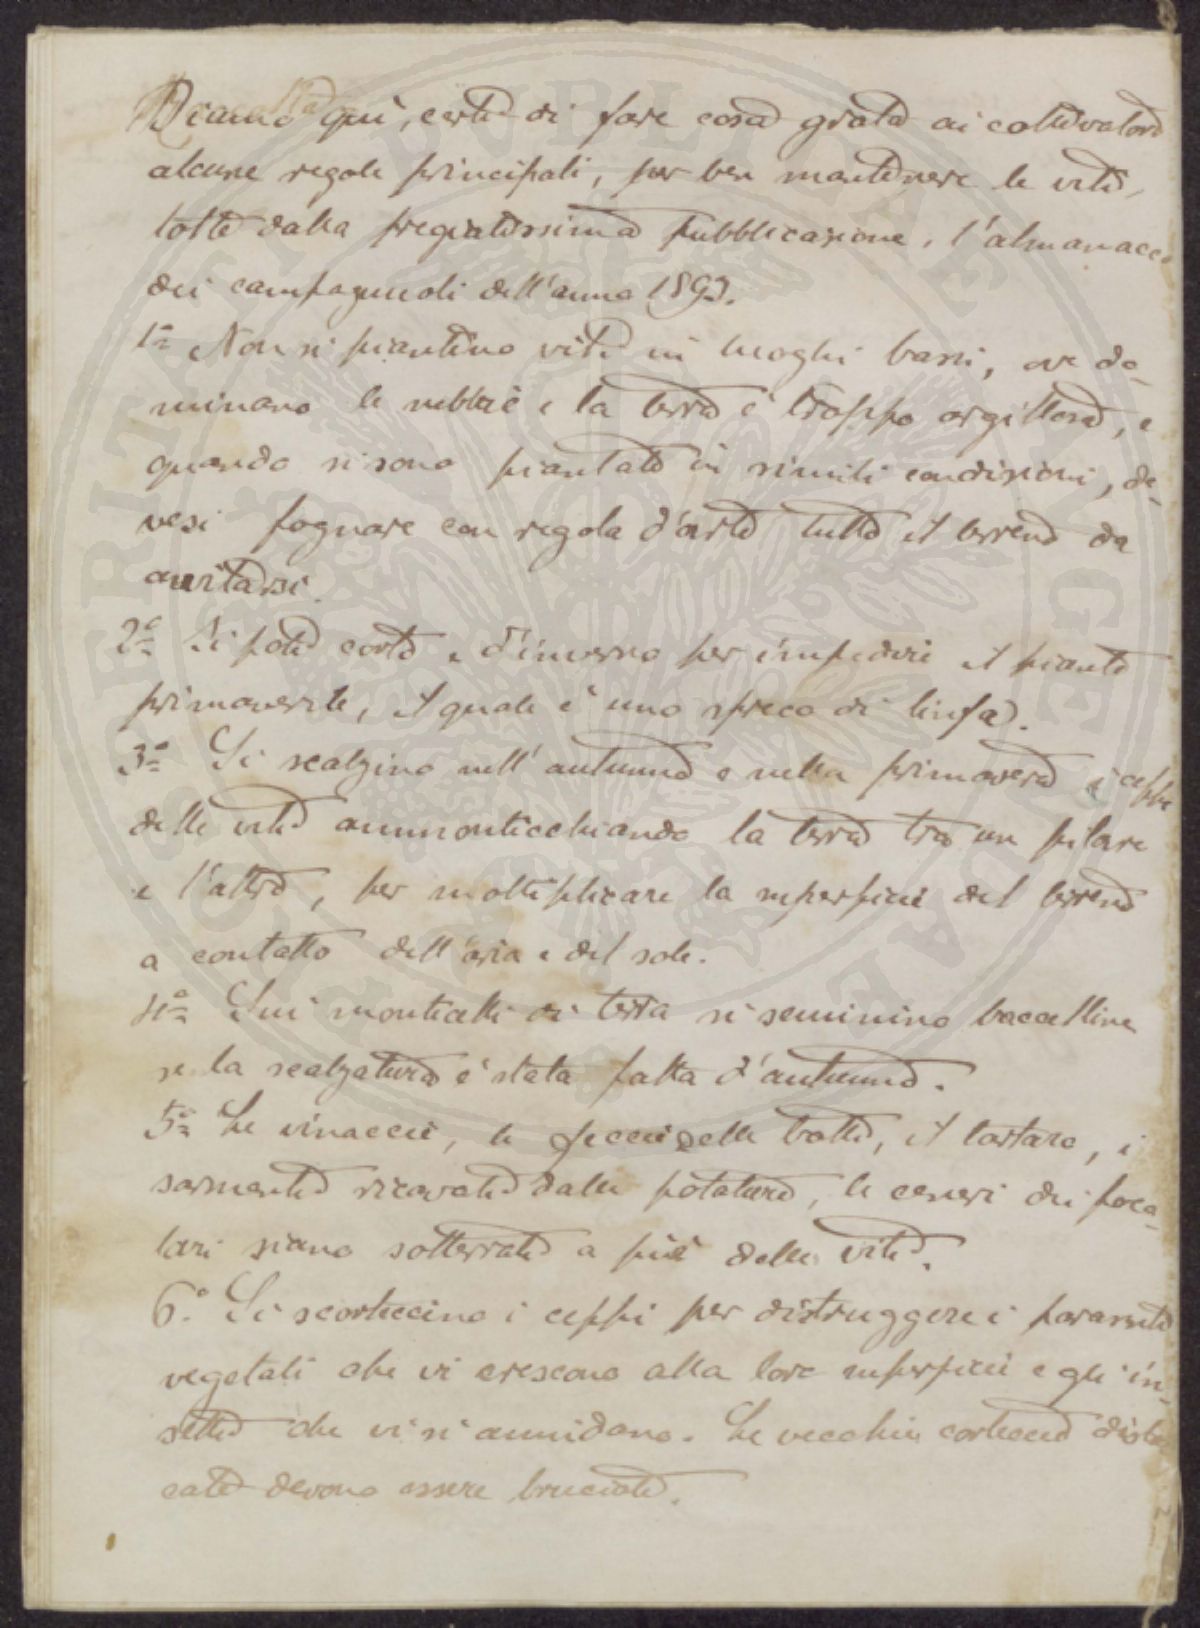 Diamo qui, certi di fare cosa grata ai coltivatori
alcune regole principali, per ben mantenere le viti,
tolte dalla pregiatissima pubblicazione, l'almanacco
dei campagnuoli dell'anno 1893.
1.a Non si piantino viti in luoghi bassi, ove do-
minano le nebbie e la terra è troppo argillosa, e
quando si sono piantate in simili condizioni, de-
vesi fognare con regola d'arte tutto il terreno da
avvitarsi.
2.a Si poti corto e d'inverno per impedire il pianto
primaverile, il quale è uno spreco di linfa.
3.a Si scalzino nell'autunno e nella primavera i ceppi
delle viti ammonticchiando la terra tra un filare
e l'altro, per moltiplicare la superficie del terreno
a contatto dell'aria e del sole.
4.a Sui monticelli di terra si seminino baccelline
se la scalzatura è stata fatta d'autunno.
5.a Le vinaccie, le feccie delle botti, il tartaro, i
sarmenti ricavati dalle potature, le ceneri dei foco-
lari siano sotterrati a piè delle viti.
6.° Si scorteccino i ceppi per distruggere i parassiti
vegetali che vi crescono alla loro superficie e gli in-
setti che vi si annidano. Le vecchie corteccie distac
cate devono essere bruciate.
PUBLICAE
VERITATIS